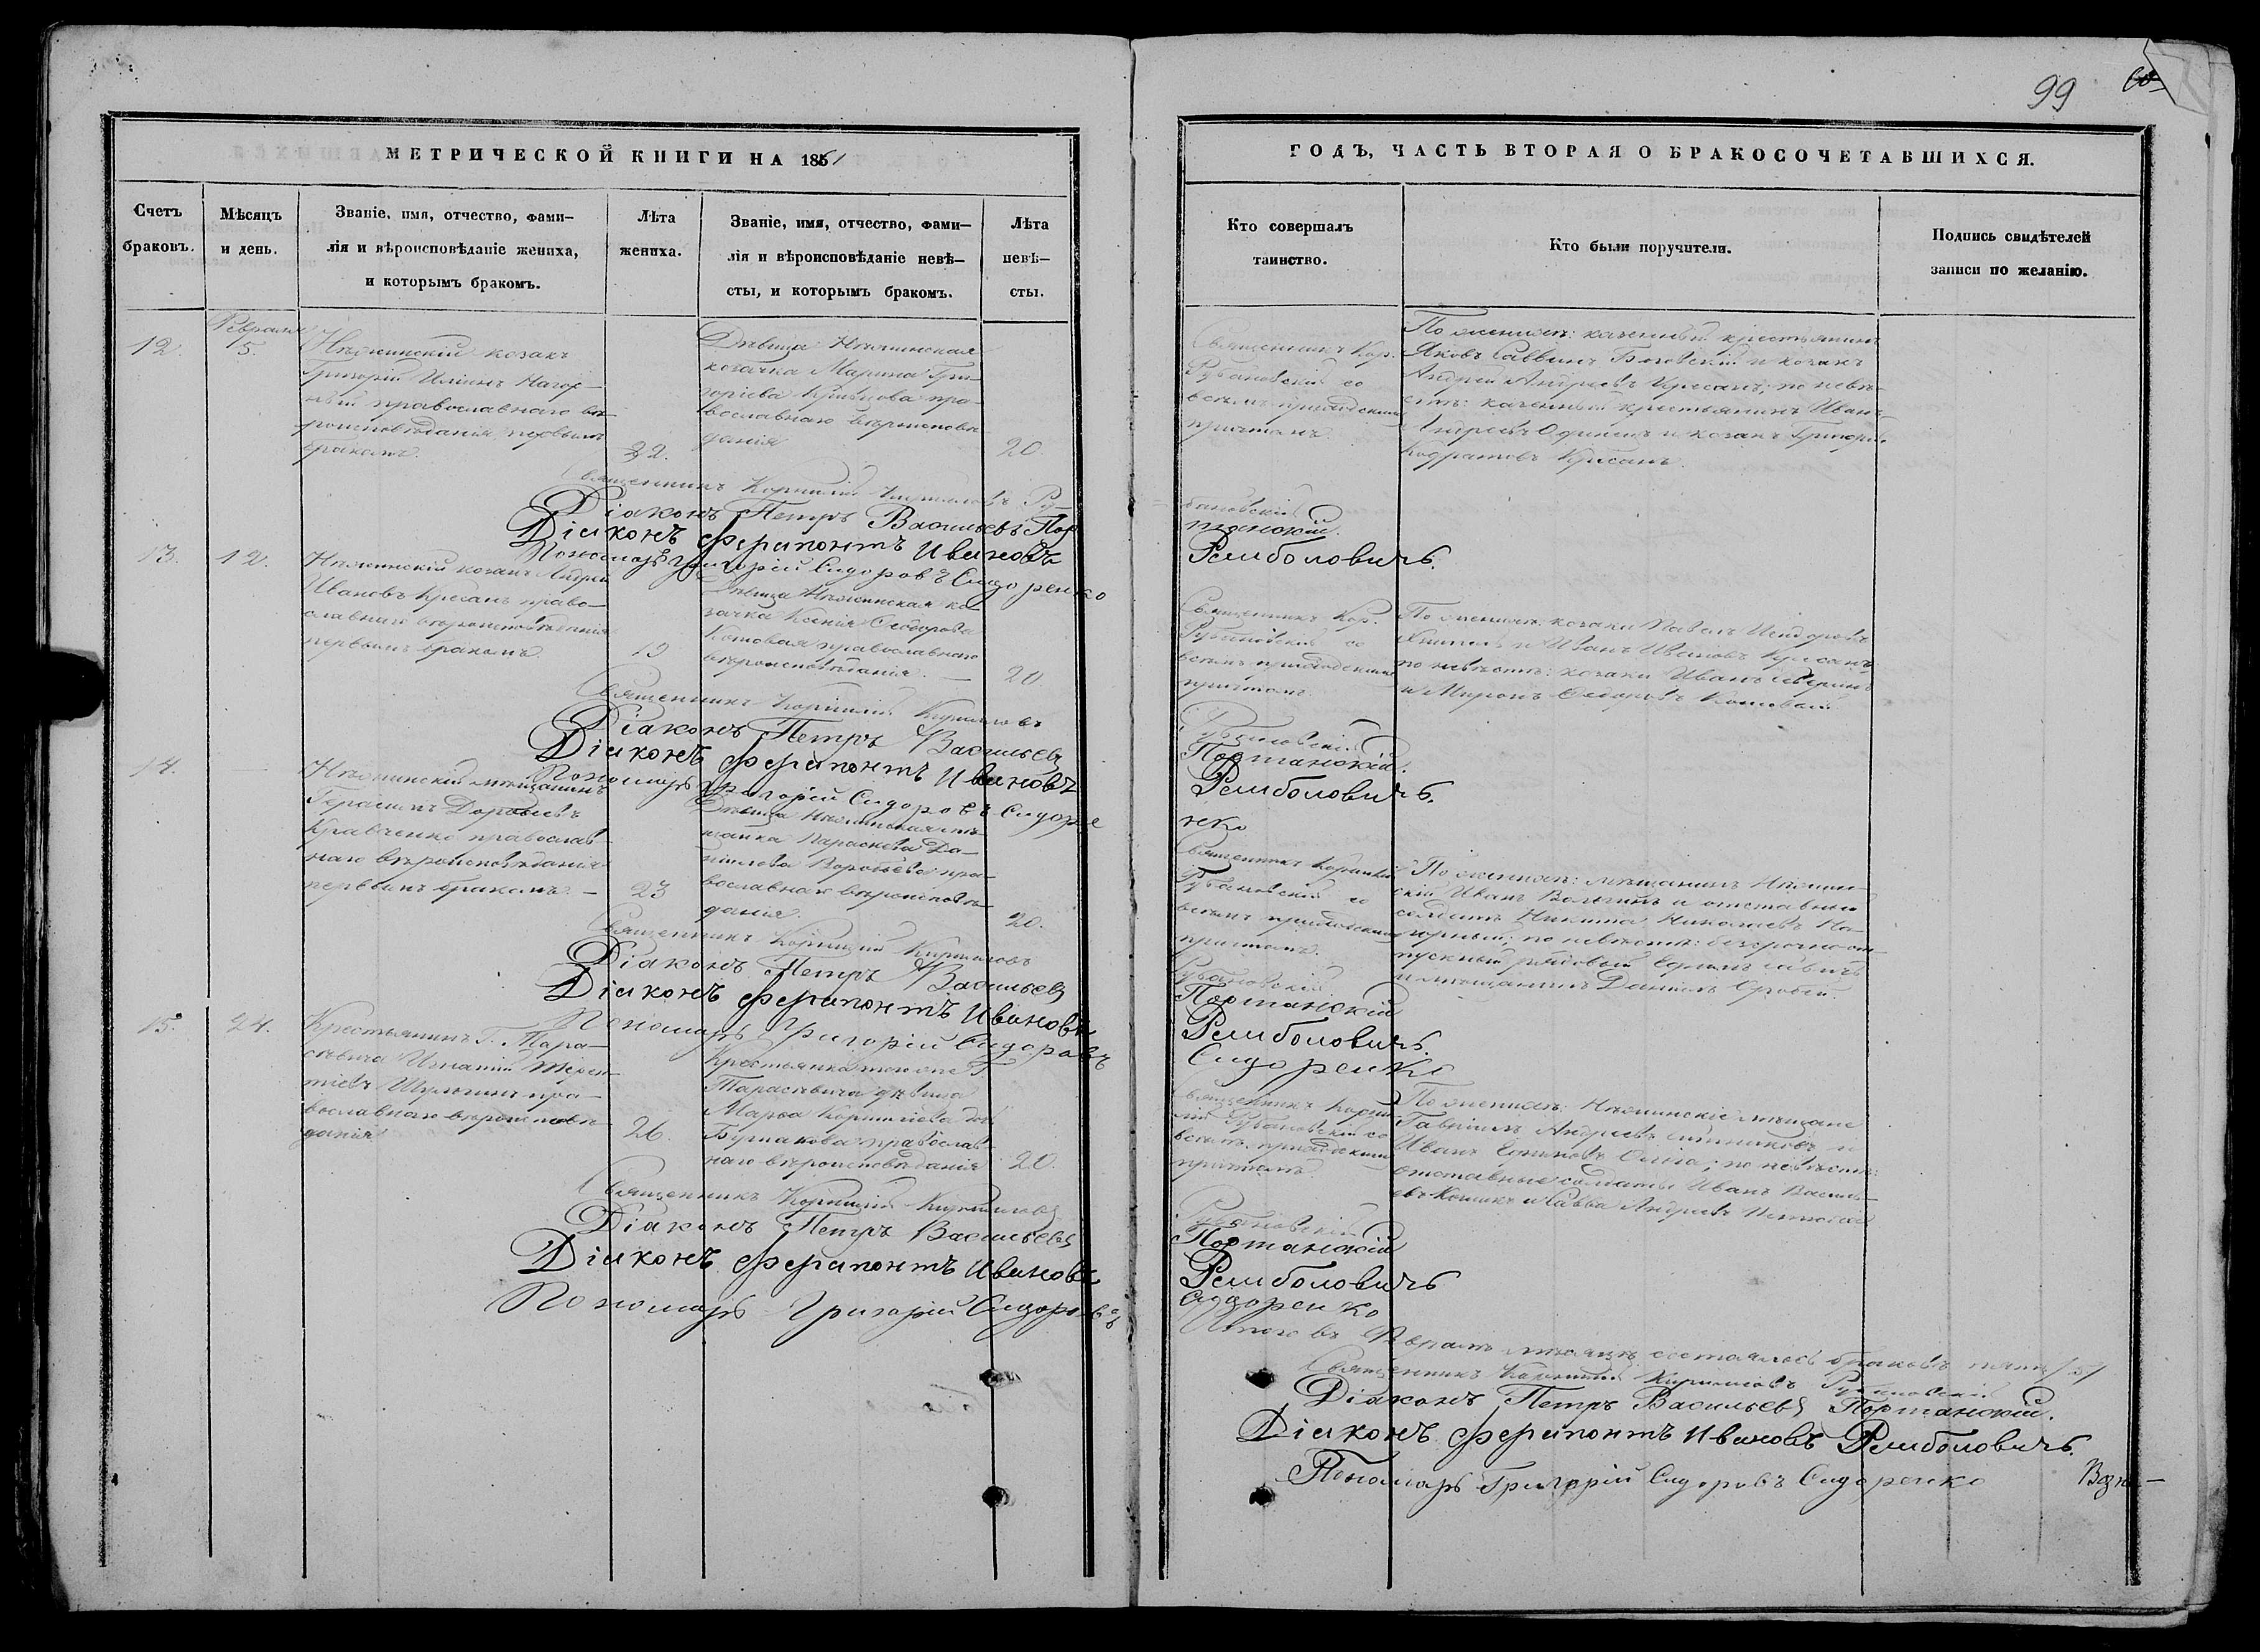 99
МЕТРИЧЕСКОЙ КНИГИ НА 1861
ГОДЪ, ЧАСТЬ ВТОРАЯ О БРАКОСОЧЕТАВШИХСЯ.
Счетъ
браковъ.
Мѣсяцъ
и день.
Званіе, имя, отчество, фами-
лія и вѣроисповѣданіе жениха,
и которымъ бракомъ.
Лѣта
жениха.
Званіе, имя, отчество, фами-
лія и вѣроисповѣданіе невѣ-
сты, и которымъ бракомъ.
Лѣта
невѣ-
сты.
Кто совершалъ
таинство.
Кто были поручители.
Подпись свидѣтелей
записи по желанію.
12.
Февраля
5.
Нѣжинскій козакъ
Григорій Иліинъ Нагор-
ный православнаго вѣ-
роисповѣданія первымъ
бракомъ.
22.
Дѣвица Нѣжинская
козачка Марина Гри-
горіева пра-
вославнаго вѣроисповѣ-
данія
20.
Священникъ Кор.
Рубановскій со
всѣмъ приходскимъ
причтомъ.
По женихѣ: казенный крестьянинъ
Яковъ Саввинъ и козакъ
Андрей Андреевъ Кресанъ; по невѣ-
стѣ: казенный крестьянинъ Иванъ
Андреевъ и козакъ Григорій
Кодратовъ Кресанъ.
Священникъ Корнилій Кирилловъ Ру-
бановскій
Діаконъ Петръ Васильевъ Пор
танскій.
Діаконъ Ферапонтъ Ивановъ
Ремболовичъ.
Пономарь Григорій Сидоровъ Сидоренко
13.
12.
Нѣжинскій козакъ Андрей
Ивановъ Кресанъ право-
славнаго вѣроисповѣданія
первымъ бракомъ.
19
Дѣвица Нѣжинская ко-
зачка Ксенія Феодорова
Котовая православнаго
вѣроисповѣданія.
20
Священникъ Кор.
Рубановскій со
всѣмъ приходскимъ
причтомъ.
По женихѣ: козаки Павелъ Исидоровъ
и Иванъ Ивановъ Кресанъ
по невѣстѣ: козаки Иванъ
и Миронъ Федоровъ Котовый.
Священникъ Корнилій Кирилловъ
Рубановскій
Діаконъ Петръ Васильевъ
Портанскій.
Діаконъ Ферапонтъ Ивановъ
Ремболовичъ.
Пономарь Григорій Сидоровъ Сидоре
нко
14.
Нѣжинскій мѣщанинъ
Герасимъ
Кравченко православ-
наго вѣроисповѣданія
первымъ бракомъ.
23
Дѣвица Нѣжинская мѣ-
щанка Параскева Да-
ніилова пра-
вославнаго вѣроисповѣ-
данія.
20.
Священникъ Корнилій
Рубановскій со
всѣмъ приходскимъ
причтомъ.
По женихѣ: мѣщанинъ Нѣжин-
скій Иванъ и отставный
солдатъ Никита Николаевъ На-
горный; по невѣстѣ: безсрочно-от-
пускный рядовый
и мѣщанинъ Даніилъ
Священникъ Корнилій Кирилловъ
Рубановскій
Діаконъ Петръ Васильевъ
Портанскій
Діаконъ Ферапонтъ Ивановъ
Ремболовичъ.
Пономарь Григорій Сидоровъ
Сидоренко
15.
24.
Крестьянинъ Г. Тара-
севича Игнатій Терен-
тіевъ пра-
вославнаго вѣроисповѣ-
данія
26.
Крестьянка того же Г
Тарасевича дѣвица
Марѳа Корниліева
православ-
наго вѣроисповѣданія
20.
Священникъ Корни-
лій Рубановскій со
всѣмъ приходскимъ
причтомъ
По женихѣ: Нѣжинскіе мѣщане
Гавріилъ Андреевъ и
Иванъ по невѣстѣ:
отставные солдаты Иванъ Василь-
евъ и Савва Андреевъ
Священникъ Корнилій Кирилловъ
Рубановскій
Діаконъ Петръ Васильевъ
Портанскій
Діаконъ Ферапонтъ Ивановъ
Ремболовичъ
Пономарь Григорій Сидоровъ
Сидоренко
Итого въ Февралѣ мѣсяцѣ состоялось браковъ пять /5/
Священникъ Корнилій Кирилловъ Рубановскій
Діаконъ Петръ Васильевъ Портанскій.
Діаконъ Ферапонтъ Ивановъ Ремболовичъ.
Пономарь Григорій Сидоровъ Сидоренко